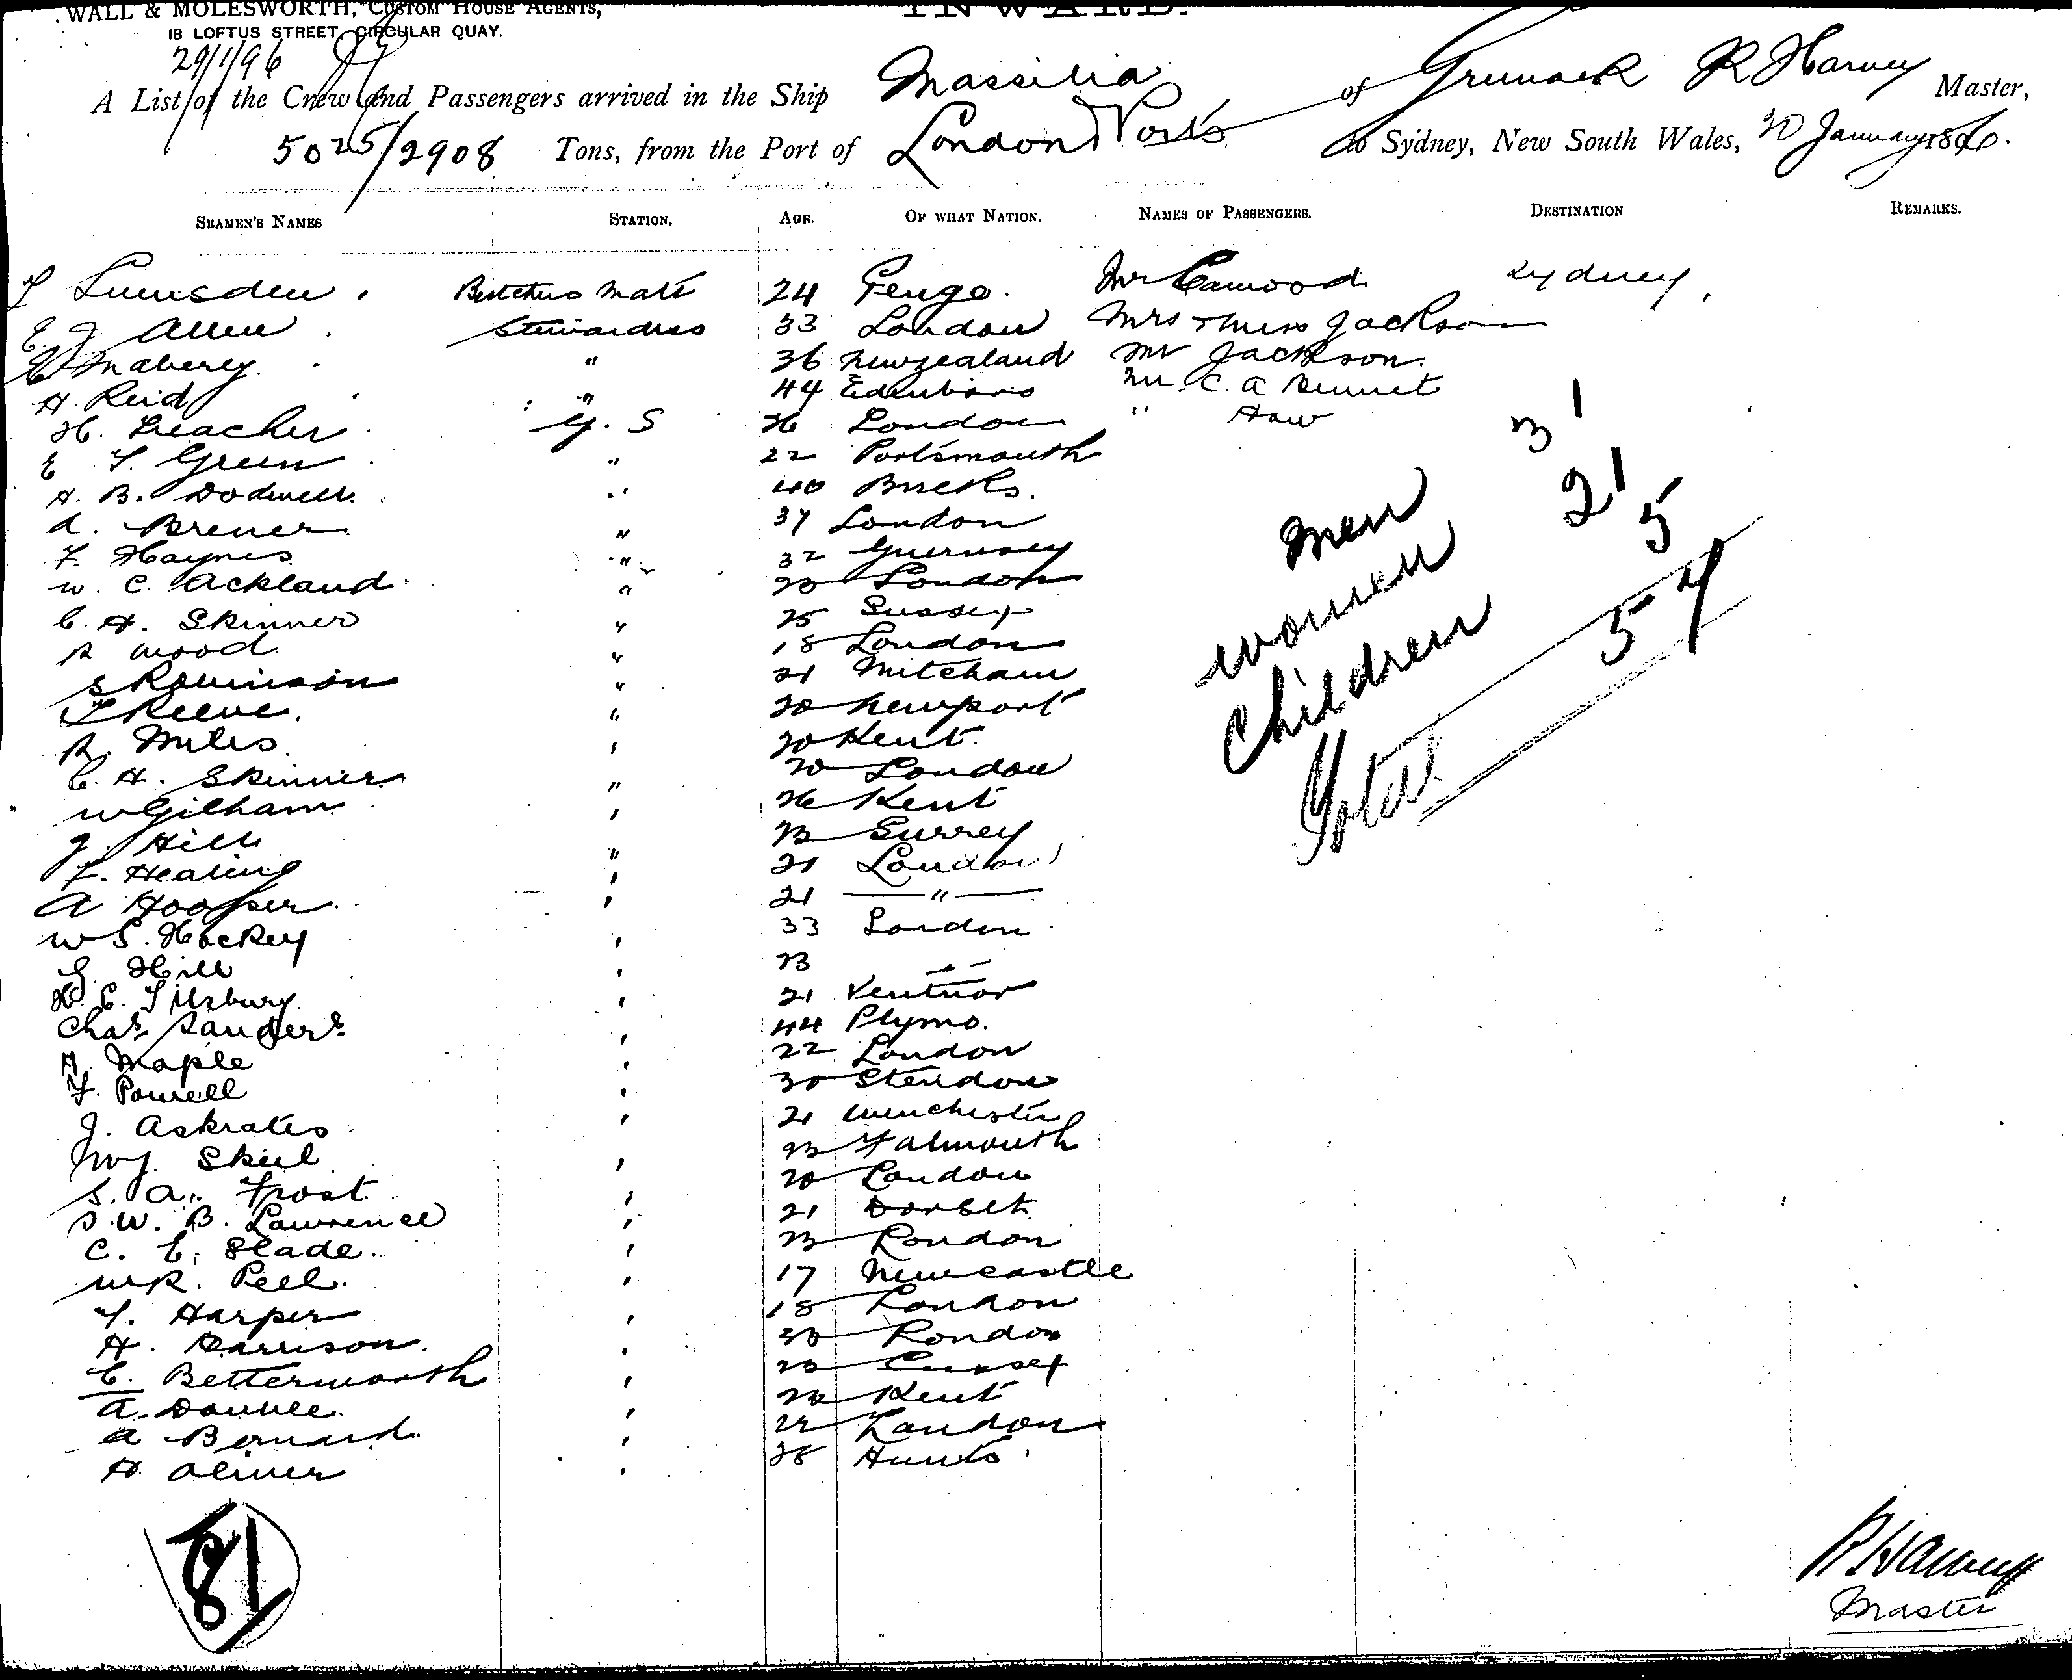 WALL & MOLESWORTH, CUSTOM HOUSE AGENTS, INWARD.
18 LOFTUS STREET, CIRCULAR QUAY.
29/1/96
A List of the Crew and Passengers arrived in the Ship Massilia of Greenock R Harvey Master,
5025/2908 Tons, from the Port of London & Ports to Sydney, New South Wales, 30 January 1896.
SEAMEN'S NAMES STATION. AGE. OF WHAT NATION. NAMES OF PASSENGERS. DESTINATION REMARKS.
Lumsden Butchers Mate 24 Mr Sydney
E. J Allen Stewardess 33 London Mrs & Miss Jackson
Maberey " 36 Newzealand Mr Jackson
H. Reid " 44 Edinboro Mr C. A Bennet
H. Leacher G. S 26 London " Haw
E Green " 22 Portsmouth
H. B. Dodwell " 40 Bucks.
A. Brewer " 37 London
F. Haynes " 32 Guernsey
W. C. Ackland " London
C. H. Skinner " 25 Sussex
R Wood " 18 London
S Robinson " 21 Mitcham
Reeve. " 20 Newport
R. Miles " 20 Kent
C. H. Skinner " 20 London
W Gilham " 26 Kent
J. Hill " 23 Surrey
F. Hearing " 21 London
A Hooper " 21 "
W S. Hockey " 33 London
G. Hill " 23
H. E. Tilsbury " 21 Ventnor
Chas Sanders " 44 Plymo.
H. Maple " 22 London
F. Powell " 30
J. Askrates " 21 Winchester
Skeel " 23 Falmouth
S. A. Frost " 20 London
S. W. B. Lawrence " 21 Dorset
C. E. Slade " 23 London
W R. Peel " 17 Newcastle
T. Harper " 18 London
H. Harrison " 30 London
E. Betterworth " Sussex
A. " Kent
A Bernard " 22 London
H Oliver " 28 Hunts
Men 31
Women 21
Children 5
Total 57
81
R Harvey
Master